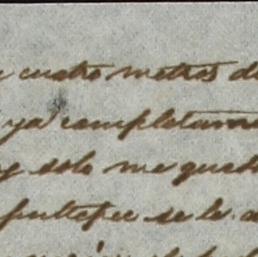 y cuatro metros de
ya completame
y solo me queda
pultepec se le a